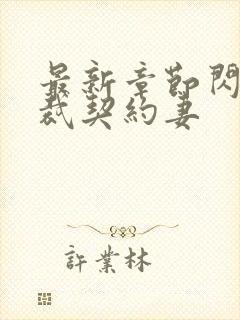 最新章節閃
裁契約妻
許業林